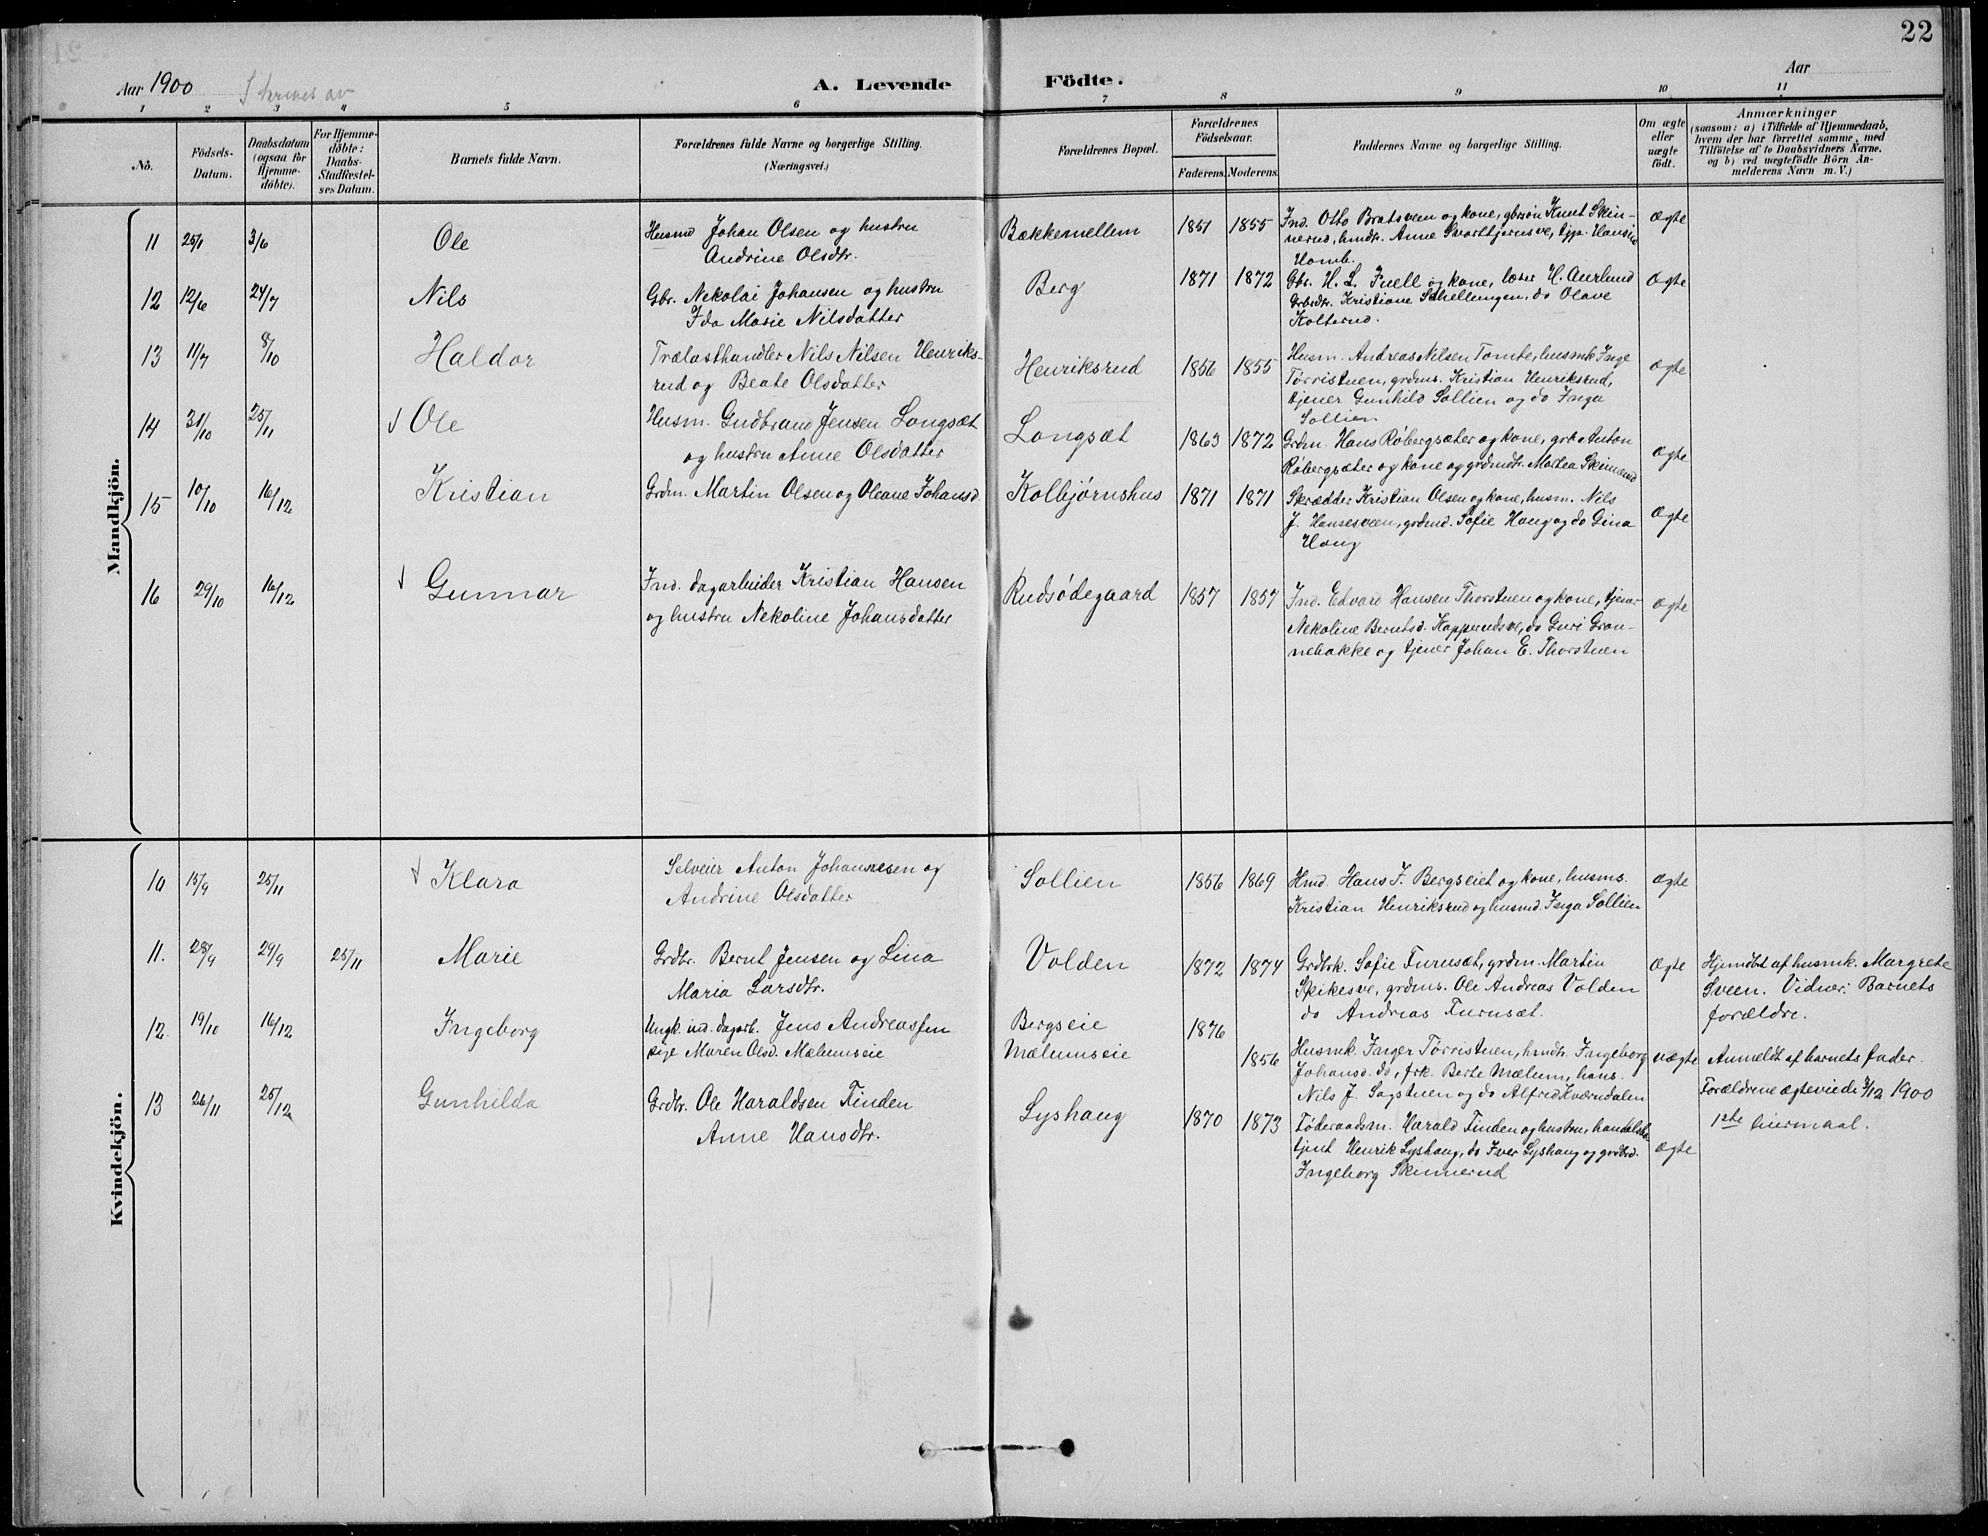 22
Aar 1900 Skrevet av A. Levende Födte. Aar
1 2 3 4 5 6 7 8 9 10 11
No. Födsels-Datum. Daabsdatum (ogsaa for Hjemmedöbte). For Hjemmedöbte: Daabs-Stadfæstelses Datum. Barnets fulde Navn. Forældrenes fulde Navne og borgerlige Stilling. (Næringsvei.) Forældrenes Bopæl. Forældrenes Födselsaar. Faderens. Moderens. Faddernes Navne og borgerlige Stilling. Om ægte eller uægte födt. Anmærkninger (saasom: a) i Tilfælde af Hjemmedaab, hvem der har forrettet samme, med Tilföielse af to Daabsvidners Navne, og b) ved uægtefödte Börn Anmelderens Navn m. V.)
Mandkjön.
11 25/1 3/6 Ole Husmd Johan Olsen og hustru
Andrine Olsdtr. Bækkemellem 1851 1855 Ind. Otto Bratsveen og kone, gbrsön Knut Skin-
nerud, hmdtr. Anne Svarttjernsve, tjp. Hansine
Homb. ægte
12 12/6 24/7 Nils Gbr. Nekolai Johansen og hustru
Ida Marie Nilsdatter Berg 1871 1872 Gbr. H. L. Fuell og kone, læser H. Aurlund
Grbrdtr. Kristiane Skjellungen, do Olave
Kolterud. ægte
13 11/7 8/10 Haldor Trælasthandler Nils Nilsen Henriks-
rud og Beate Olsdatter Henriksrud 1856 1855 Husm. Andreas Nilsen Tomte, husmk Inge
Törristuen, grdms. Kristian Henriksrud,
tjener Gunhild Sollien og do Inga
Sollien ægte
14 31/10 25/11 Ole Husm. Gudbrand Jensen Longsæt
og hustru Anne Olsdatter Longsæt 1863 1872 Grdm. Hans Röbergsæter og kone, grbr Anton
Röbergsæter og kone og grdmdtr. Martea Skinnerud ægte
15 10/10 16/12 Kristian Grdm. Martin Olsen og Oleane Johansd. Kolbjørnshus 1871 1871 Skrædder Kristian Olsen og kone, husm. Nils
J. Hansesveen, grdmd. Sofie Haug og do Gina
Haug ægte
16 29/10 16/12 Gunnar Ind. dagarbeider Kristian Hansen
og hustru Nekoline Johansdatter Rudsødegaard 1857 1857 Ind. Edvard Hansen Thorstuen og kone, tjener
Nekoline Berntsd. Kopperudsve, do Guri Gron-
nebakke og tjener Johan E. Thorstuen ægte
Kvindekjön.
10 15/9 25/11 Klara Selveier Anton Johannesen og
Andrine Olsdatter Sollien 1856 1869 Hmd. Hans J. Bergseiet og kone, husms.
Kristian Henriksrud og husmd. Inga Sollien ægte
11. 28/9 29/9 25/11 Marie Grdbr. Bernt Jensen og Lina
Maria Larsdtr. Volden 1872 1874 Grdbrk. Sofie Furusæt, grdm. Martin
Skikesve, grdms. Ole Andreas Volden
do Andreas Furusæt. ægte Hjemdöbt af husmk. Margrete
Sveen. Vidner: Barnets
forældre.
12. 19/10 16/12 Ingeborg Ungk. ind. dagarb. Jens Andreassen
pige Maren Olsd. Mælumseie Bergseie
Mælumseie 1876 1856 Husmk. Inger Törristuen, hmdtr. Ingeborg
Johansd. do, frk. Berte Mælum, hans.
Nils J. Sagstuen og do Alfred Kværndalen uægte Anmeldt af barnets fader.
Forældrene ægteviede 3/12 1900
1ste leiermaal.
13 26/11 25/12 Gunhilda Grdbr. Ole Haraldsen Finden
Anne Hansdtr. Lyshaug 1870 1873 Föderaadsm. Harald Finden og hustru, handelsbe-
tjent Henrik Lyshaug, do Iver Lyshaug og grdbrd.
Ingeborg Skinnerud ægte